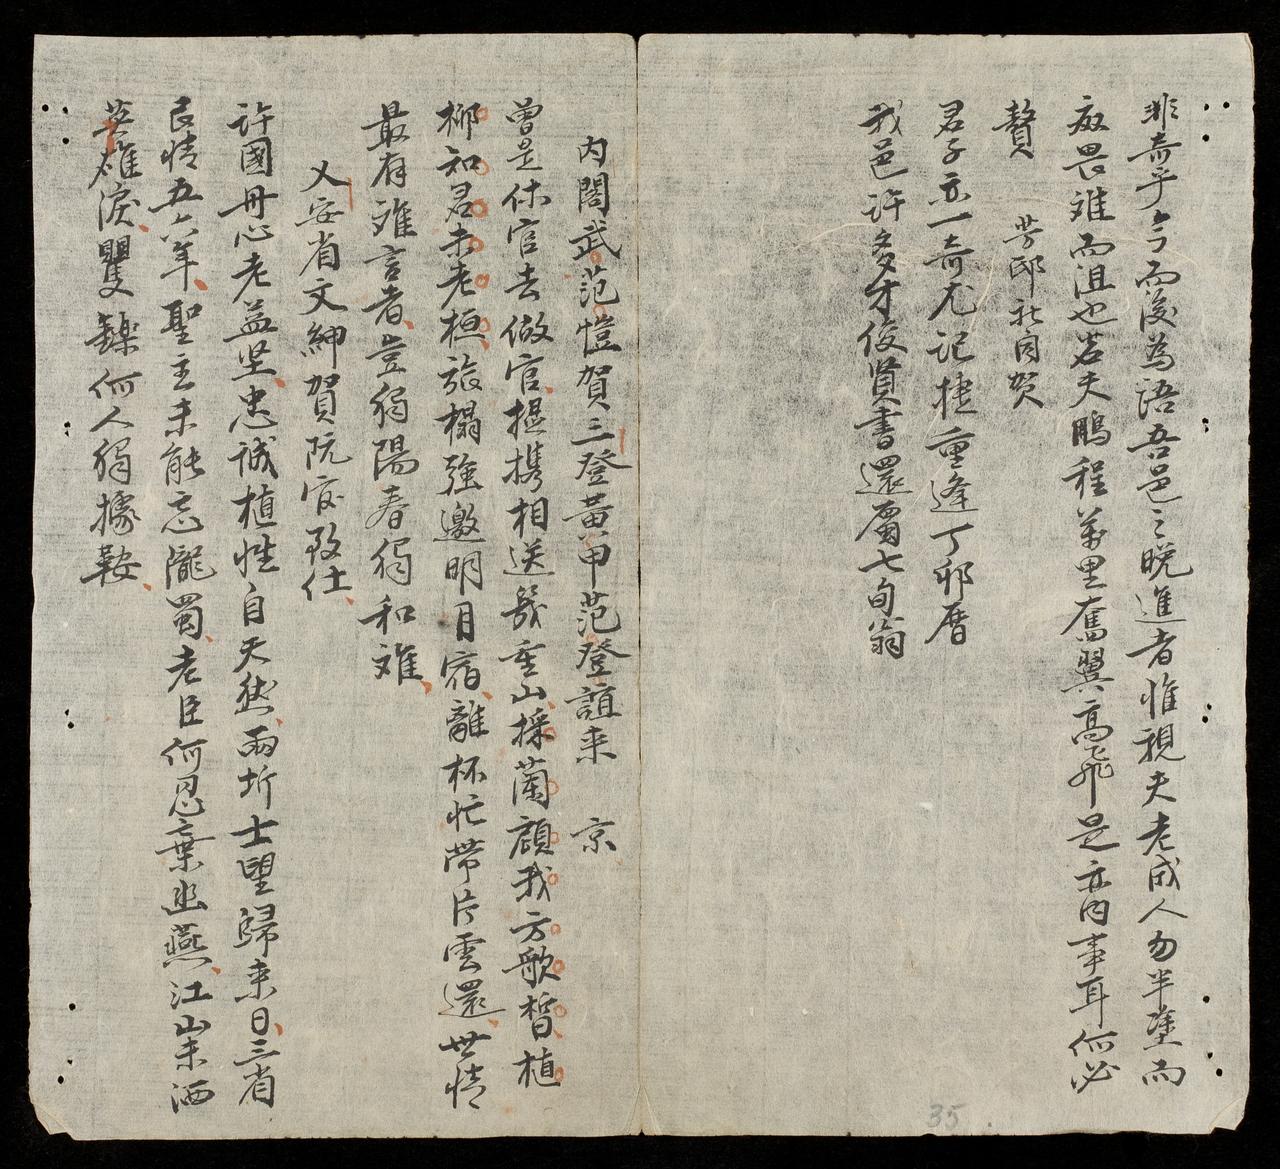 非奇乎今而後為語吾邑之晚進者惟視夫老成人勿半塗而
癈畏难而沮也若夫鵬程萬里奮翼高飛是亦內事耳何必
贅　芳邸社同贺
君子亦一奇尤記桂重逢丁卯曆
我邑許多才俊賢書還屬七旬翁
內閣武范愷賀三登黃甲范登誼来　京
曾是休官去做官榅携相送幾重山採蘭顧我方歌暂植
柳知君未老桓旅榻強邀明月宿離杯忙帶片雲還世情
最有难言者豈獨陽春獨和难
乂安省文紳賀阮官致仕
許國丹心老益坚忠誠植性自天然兩圻士望歸来日三省
民情五六年聖主未能忘隴蜀老臣何忍棄幽燕江山未洒
英雄淚矍鑠何人獨據鞍
35